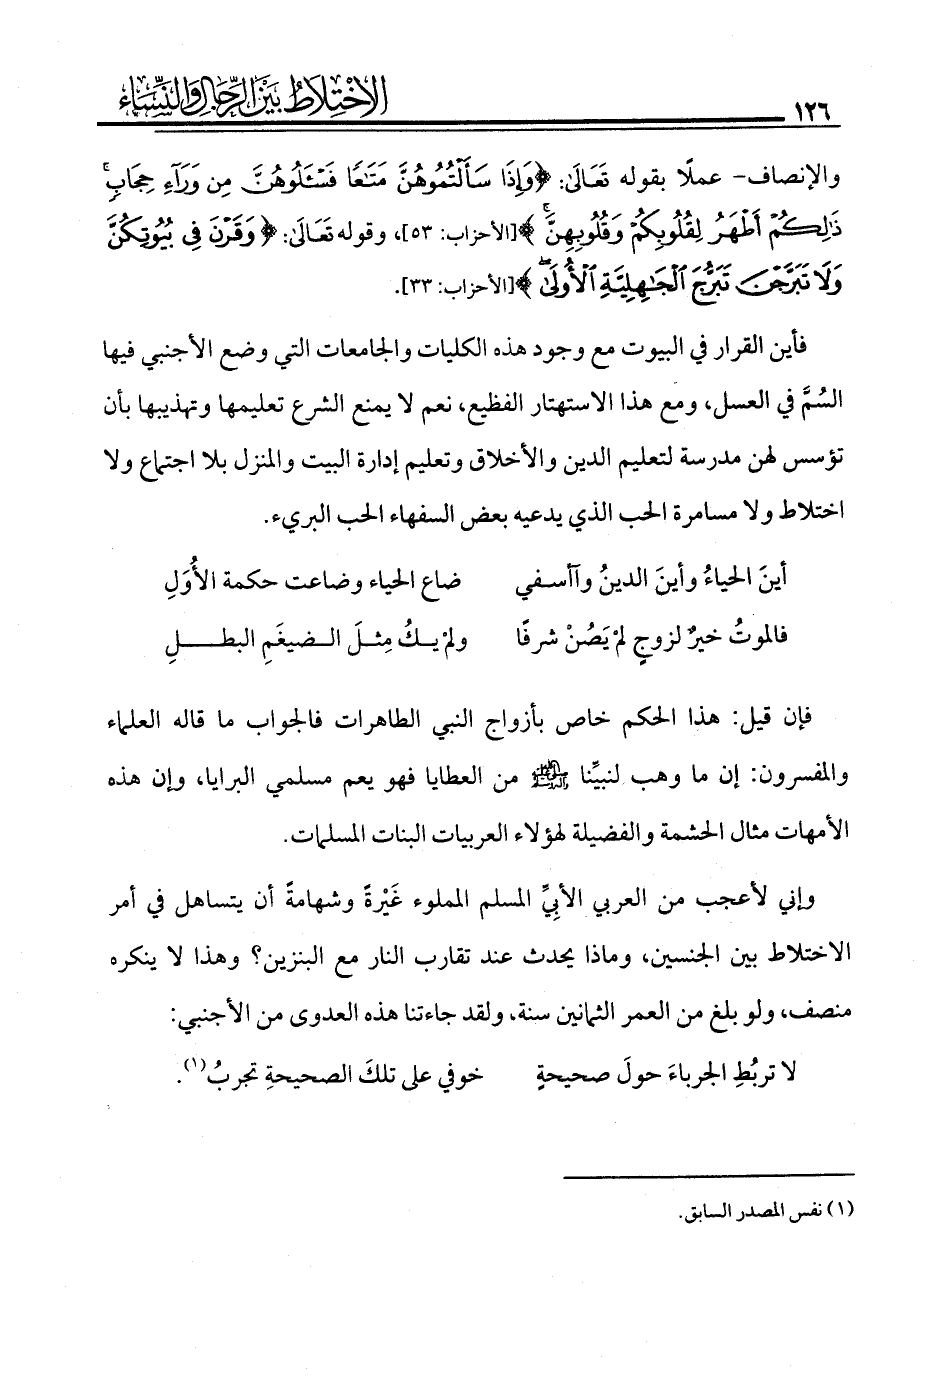 ١٢٦ الاخْتِلَاطُ بَيْنَ الرِّجَالِ وَالنِّسَاءِ
والإنصاف- عملًا بقوله تَعَالَى: ﴿وَإِذَا سَأَلْتُمُوهُنَّ مَتَٰعًا فَسْـَٔلُوهُنَّ مِن وَرَآءِ حِجَابٍۚ
ذَٰلِكُمْ أَطْهَرُ لِقُلُوبِكُمْ وَقُلُوبِهِنَّۚ﴾ [الأحزاب: ٥٣]، وقوله تَعَالَى: ﴿وَقَرْنَ فِى بُيُوتِكُنَّ
وَلَا تَبَرَّجْنَ تَبَرُّجَ ٱلْجَٰهِلِيَّةِ ٱلْأُولَىٰۖ﴾ [الأحزاب: ٣٣].
فأين القرار في البيوت مع وجود هذه الكليات والجامعات التي وضع الأجنبي فيها
السُمَّ في العسل، ومع هذا الاستهتار الفظيع، نعم لا يمنع الشرع تعليمها وتهذيبها بأن
تؤسس لهن مدرسة لتعليم الدين والأخلاق وتعليم إدارة البيت والمنزل بلا اجتماع ولا
اختلاط ولا مسامرة الحب الذي يدعيه بعض السفهاء الحب البريء.
أينَ الحياءُ وأينَ الدينُ وآأسفي ضاع الحياء وضاعت حكمة الأُوَلِ
فالموتُ خيرٌ لزوجٍ لمْ يَصُنْ شرفًا ولمْ يـكُ مِثـلَ الـضيغَمِ البطـــلِ
فإن قيل: هذا الحكم خاص بأزواج النبي الطاهرات فالجواب ما قاله العلماء
والمفسرون: إن ما وهب لنبيِّنا ﷺ من العطايا فهو يعم مسلمي البرايا، وإن هذه
الأمهات مثال الحشمة والفضيلة لهؤلاء العربيات البنات المسلمات.
وإني لأعجب من العربي الأبيِّ المسلم المملوء غَيْرةً وشهامةً أن يتساهل في أمر
الاختلاط بين الجنسين، وماذا يحدث عند تقارب النار مع البنزين؟ وهذا لا ينكره
منصف، ولو بلغ من العمر الثمانين سنة، ولقد جاءتنا هذه العدوى من الأجنبي:
لا تربُطِ الجرباءَ حولَ صحيحةٍ خوفي على تلكَ الصحيحةِ تجربُ(١).
(١) نفس المصدر السابق.